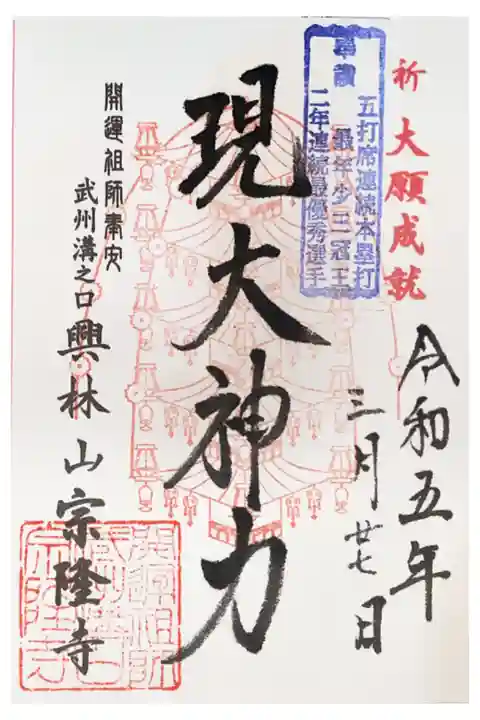 祈 大願成就
令和五年
三月廿七日
奉讃
五打席連続本塁打
最年少三冠王
二年連続最優秀選手
現大神力
開運祖師奉安
武州溝之口
興林山宗隆寺